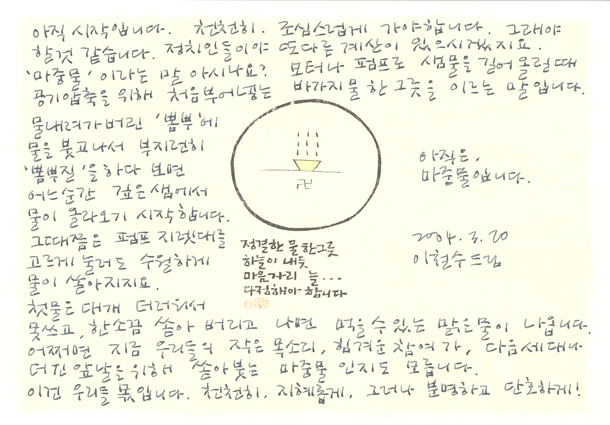 아직 시작입니다. 천천히. 조심스럽게 가야합니다. 그래야
할것 같습니다. 정치인들이야 또다른 계산이 있으시겠지요.
'마중물' 이라는 말 아시나요? 모터나 펌프로 샘물을 길어 올릴때
공기압축을 위해 처음부어넣는 바가지물 한그릇을 이르는 말입니다.
물내려가버린 '뽐뿌'에
물을 붓고나서 부지런히
'뽐뿌질'을 하다 보면
어느순간 깊은샘에서
물이 올라오기 시작합니다.
그때쯤은 펌프 지렛대를
고르게 눌러도 수월하게
물이 쏟아지지요.
첫물은 대개 더러워서
못쓰고, 한소끔 쏟아 버리고 나면 먹을수 있는 맑은물이 나옵니다.
어쩌면 지금 우리들의 작은 목소리, 힘겨운 참여가, 다음세대나
더 긴 앞날을 위해 쏟아붓는 마중물 인지도 모릅니다.
이건 우리들 몫입니다. 천천히, 지혜롭게, 그러나 분명하고 단호하게!
卍
정결한 물 한그릇
하늘이 내듯
마음자리 늘...
다정해야 합니다
아직은,
마중물입니다.
2004. 3. 20
이철수 드림